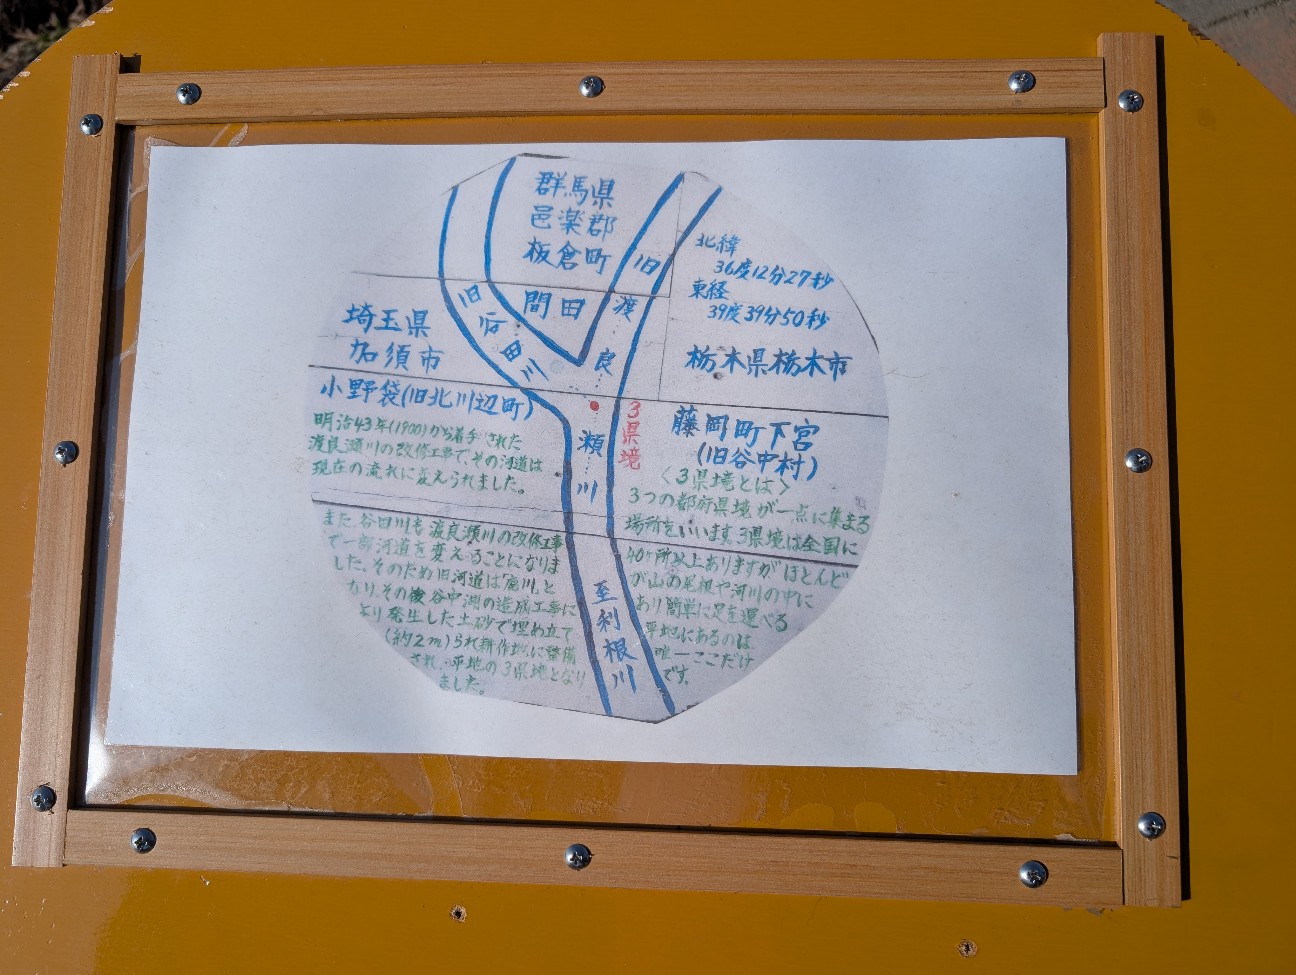 群馬県
邑楽郡
板倉町
間田
旧谷田川
旧渡良瀬川
至利根川
3県境
埼玉県
加須市
小野袋(旧北川辺町)
明治43年(1900)から着手された
渡良瀬川の改修工事で、その河道は
現在の流れに変えられました。
また、谷田川も渡良瀬川の改修工事
で一部河道を変えることになりま
した。そのため旧河道は「廃川」と
なり、その後谷中湖の造成工事に
より発生した土砂で埋め立て
(約2m)られ耕作地に整備
され、平地の3県境となり
ました。
北緯
36度12分27秒
東経
39度39分50秒
栃木県栃木市
藤岡町下宮
(旧谷中村)
〈3県境とは〉
3つの都府県境が一点に集まる
場所をいいます。3県境は全国に
40ヶ所以上ありますがほとんど
が山の尾根や河川の中に
あり簡単に足を運べる
平地にあるのは
唯一ここだけ
です。